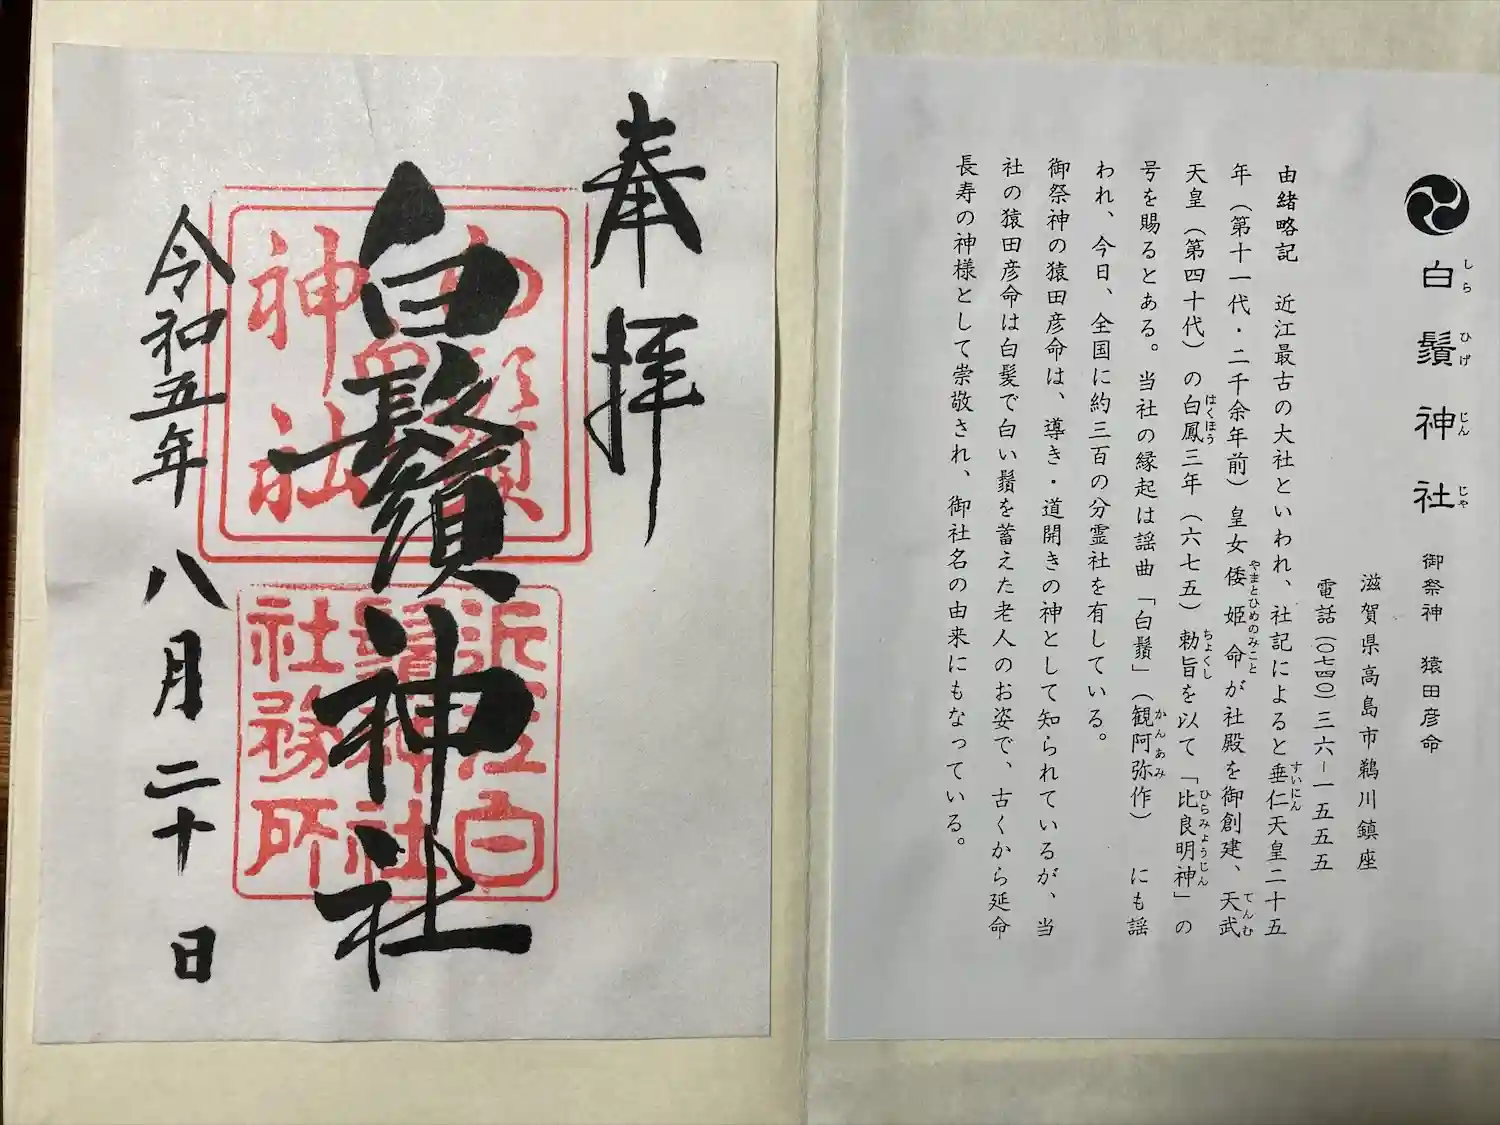 白鬚神社 御祭神 猿田彦命
しらひげじんじゃ
滋賀県高島市鵜川鎮座
電話(〇七四〇)三六ー一五五五
由緒略記 近江最古の大社といわれ、社記によると垂仁天皇二十五
すいにん
年(第十一代・二千余年前)皇女倭姫命が社殿を御創建、天武
やまとひめのみこと てんむ
天皇(第四十代)の白鳳三年(六七五)勅旨を以て「比良明神」の
はくほう ちょくし ひらみょうじん
号を賜るとある。当社の縁起は謡曲「白鬚」(観阿弥作) にも謡
かんあみ
われ、今日、全国に約三百の分霊社を有している。
御祭神の猿田彦命は、導き・道開きの神として知られているが、当
社の猿田彦命は白髪で白い鬚を蓄えた老人のお姿で、古くから延命
長寿の神様として崇敬され、御社名の由来にもなっている。
奉拝
白鬚神社
令和五年八月二十日
白鬚
神社
近江白
鬚神社
社務所